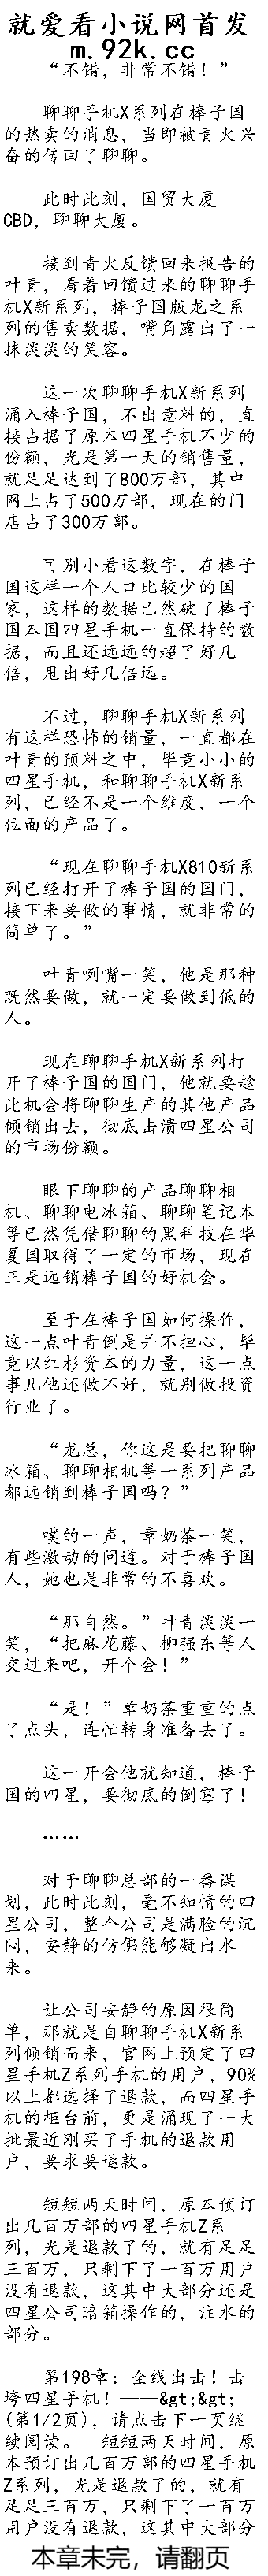 就爱看小说网首发
m.92k.cc
“不错，非常不错！”
聊聊手机X系列在棒子国
的热卖的消息，当即被青火兴
奋的传回了聊聊。
此时此刻，国贸大厦
CBD，聊聊大厦。
接到青火反馈回来报告的
叶青，看着回馈过来的聊聊手
机X新系列，棒子国版龙之系
列的售卖数据，嘴角露出了一
抹淡淡的笑容。
这一次聊聊手机X新系列
涌入棒子国，不出意料的，直
接占据了原本四星手机不少的
份额，光是第一天的销售量，
就足足达到了800万部，其中
网上占了500万部，现在的门
店占了300万部。
可别小看这数字，在棒子
国这样一个人口比较少的国
家，这样的数据已然破了棒子
国本国四星手机一直保持的数
据，而且还远远的超了好几
倍，甩出好几倍远。
不过，聊聊手机X新系列
有这样恐怖的销量，一直都在
叶青的预料之中，毕竟小小的
四星手机，和聊聊手机X新系
列，已经不是一个维度，一个
位面的产品了。
“现在聊聊手机X810新系
列已经打开了棒子国的国门，
接下来要做的事情，就非常的
简单了。”
叶青咧嘴一笑，他是那种
既然要做，就一定要做到低的
人。
现在聊聊手机X新系列打
开了棒子国的国门，他就要趁
此机会将聊聊生产的其他产品
倾销出去，彻底击溃四星公司
的市场份额。
眼下聊聊的产品聊聊相
机、聊聊电冰箱、聊聊笔记本
等已然凭借聊聊的黑科技在华
夏国取得了一定的市场，现在
正是远销棒子国的好机会。
至于在棒子国如何操作，
这一点叶青倒是并不担心，毕
竟以红杉资本的力量，这一点
事儿他还做不好，就别做投资
行业了。
“龙总，你这是要把聊聊
冰箱、聊聊相机等一系列产品
都远销到棒子国吗？”
噗的一声，章奶茶一笑，
有些激动的问道。对于棒子国
人，她也是非常的不喜欢。
“那自然。”叶青淡淡一
笑，“把麻花藤、柳强东等人
交过来吧，开个会！”
“是！”章奶茶重重的点
了点头，连忙转身准备去了。
这一开会他就知道，棒子
国的四星，要彻底的倒霉了！
……
对于聊聊总部的一番谋
划，此时此刻，毫不知情的四
星公司，整个公司是满脸的沉
闷，安静的仿佛能够凝出水
来。
让公司安静的原因很简
单，那就是自聊聊手机X新系
列倾销而来，官网上预定了四
星手机Z系列手机的用户，90%
以上都选择了退款，而四星手
机的柜台前，更是涌现了一大
批最近刚买了手机的退款用
户，要求要退款。
短短两天时间，原本预订
出几百万部的四星手机Z系
列，光是退款了的，就有足足
三百万，只剩下了一百万用户
没有退款，这其中大部分还是
四星公司暗箱操作的，注水的
部分。
第198章：全线出击！击
垮四星手机！——&gt;&gt;
(第1/2页)，请点击下一页继
续阅读。 短短两天时间，原
本预订出几百万部的四星手机
Z系列，光是退款了的，就有
足足三百万，只剩下了一百万
用户没有退款，这其中大部分
本章未完，请翻页